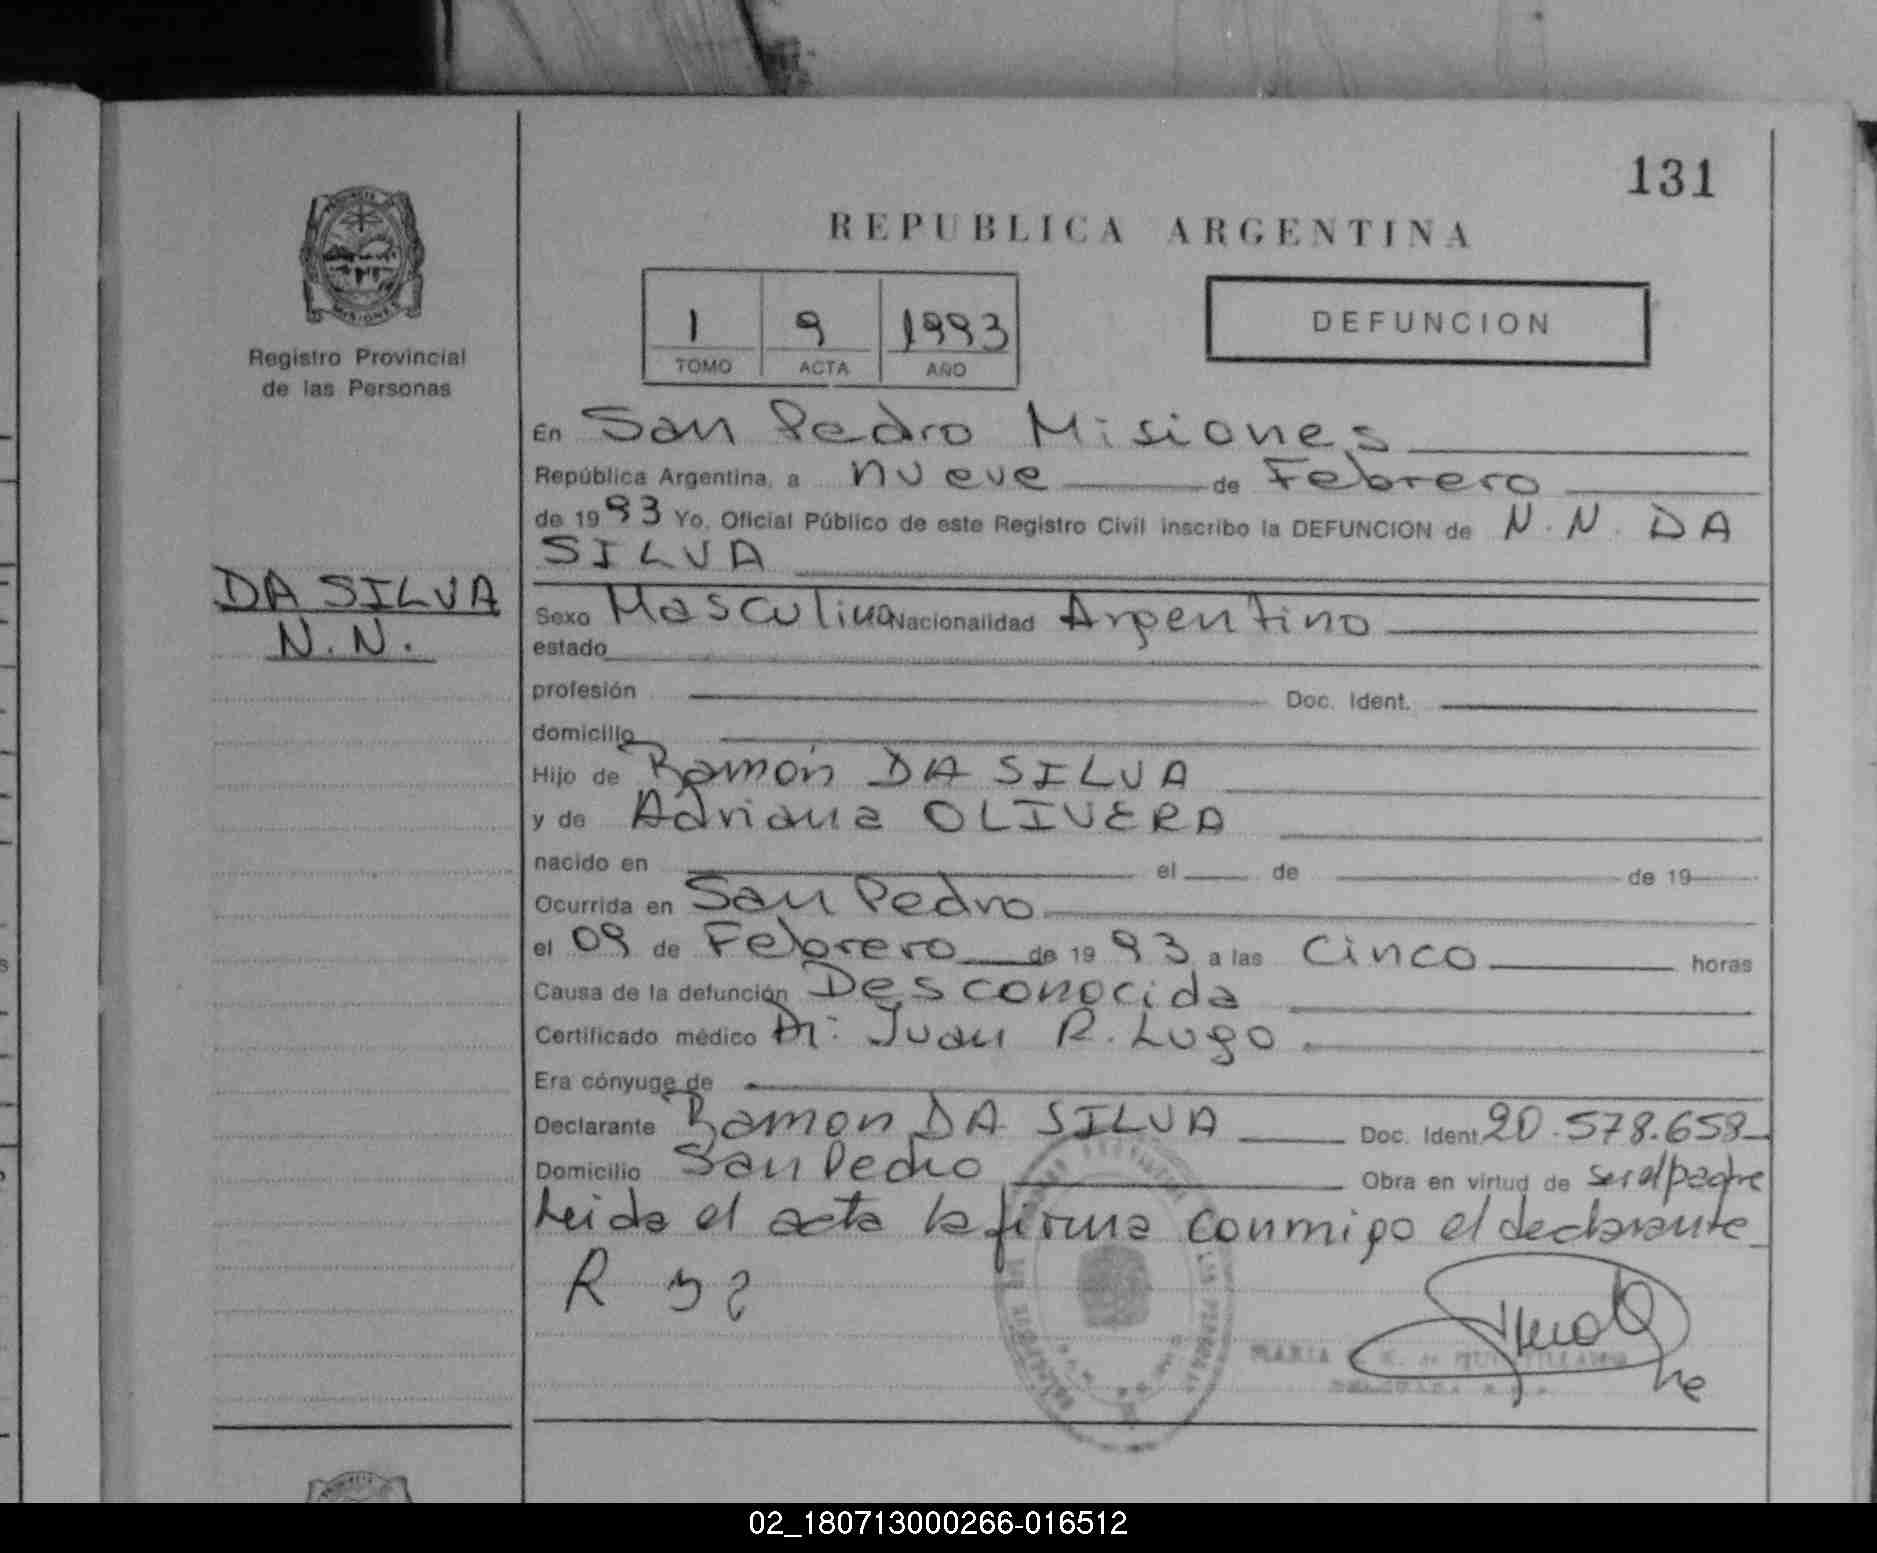 131
REPUBLICA ARGENTINA
PROVINCIA
MISIONES
Registro Provincial
de las Personas
1 9 1993
TOMO ACTA AÑO
DEFUNCION
En San Pedro Misiones
República Argentina, a nueve de Febrero
de 1993 Yo, Oficial Público de este Registro Civil inscribo la DEFUNCION de N.N. DA
SILVA
DA SILVA
N.N.
Sexo Masculino Nacionalidad Argentino
estado
profesión Doc. Ident.
domicilio
Hijo de Ramón DA SILVA
y de Adriana OLIVERA
nacido en el de de 19
Ocurrida en San Pedro
el 09 de Febrero de 1993 a las Cinco horas
Causa de la defunción Desconocida
Certificado médico Dr: Juan R. Lugo
Era cónyuge de
Declarante Ramon DA SILVA Doc. Ident. 20.578.658
Domicilio San Pedro Obra en virtud de ser el padre
Leida el acta la firma conmigo el declarante
R
MARIA
02_180713000266-016512